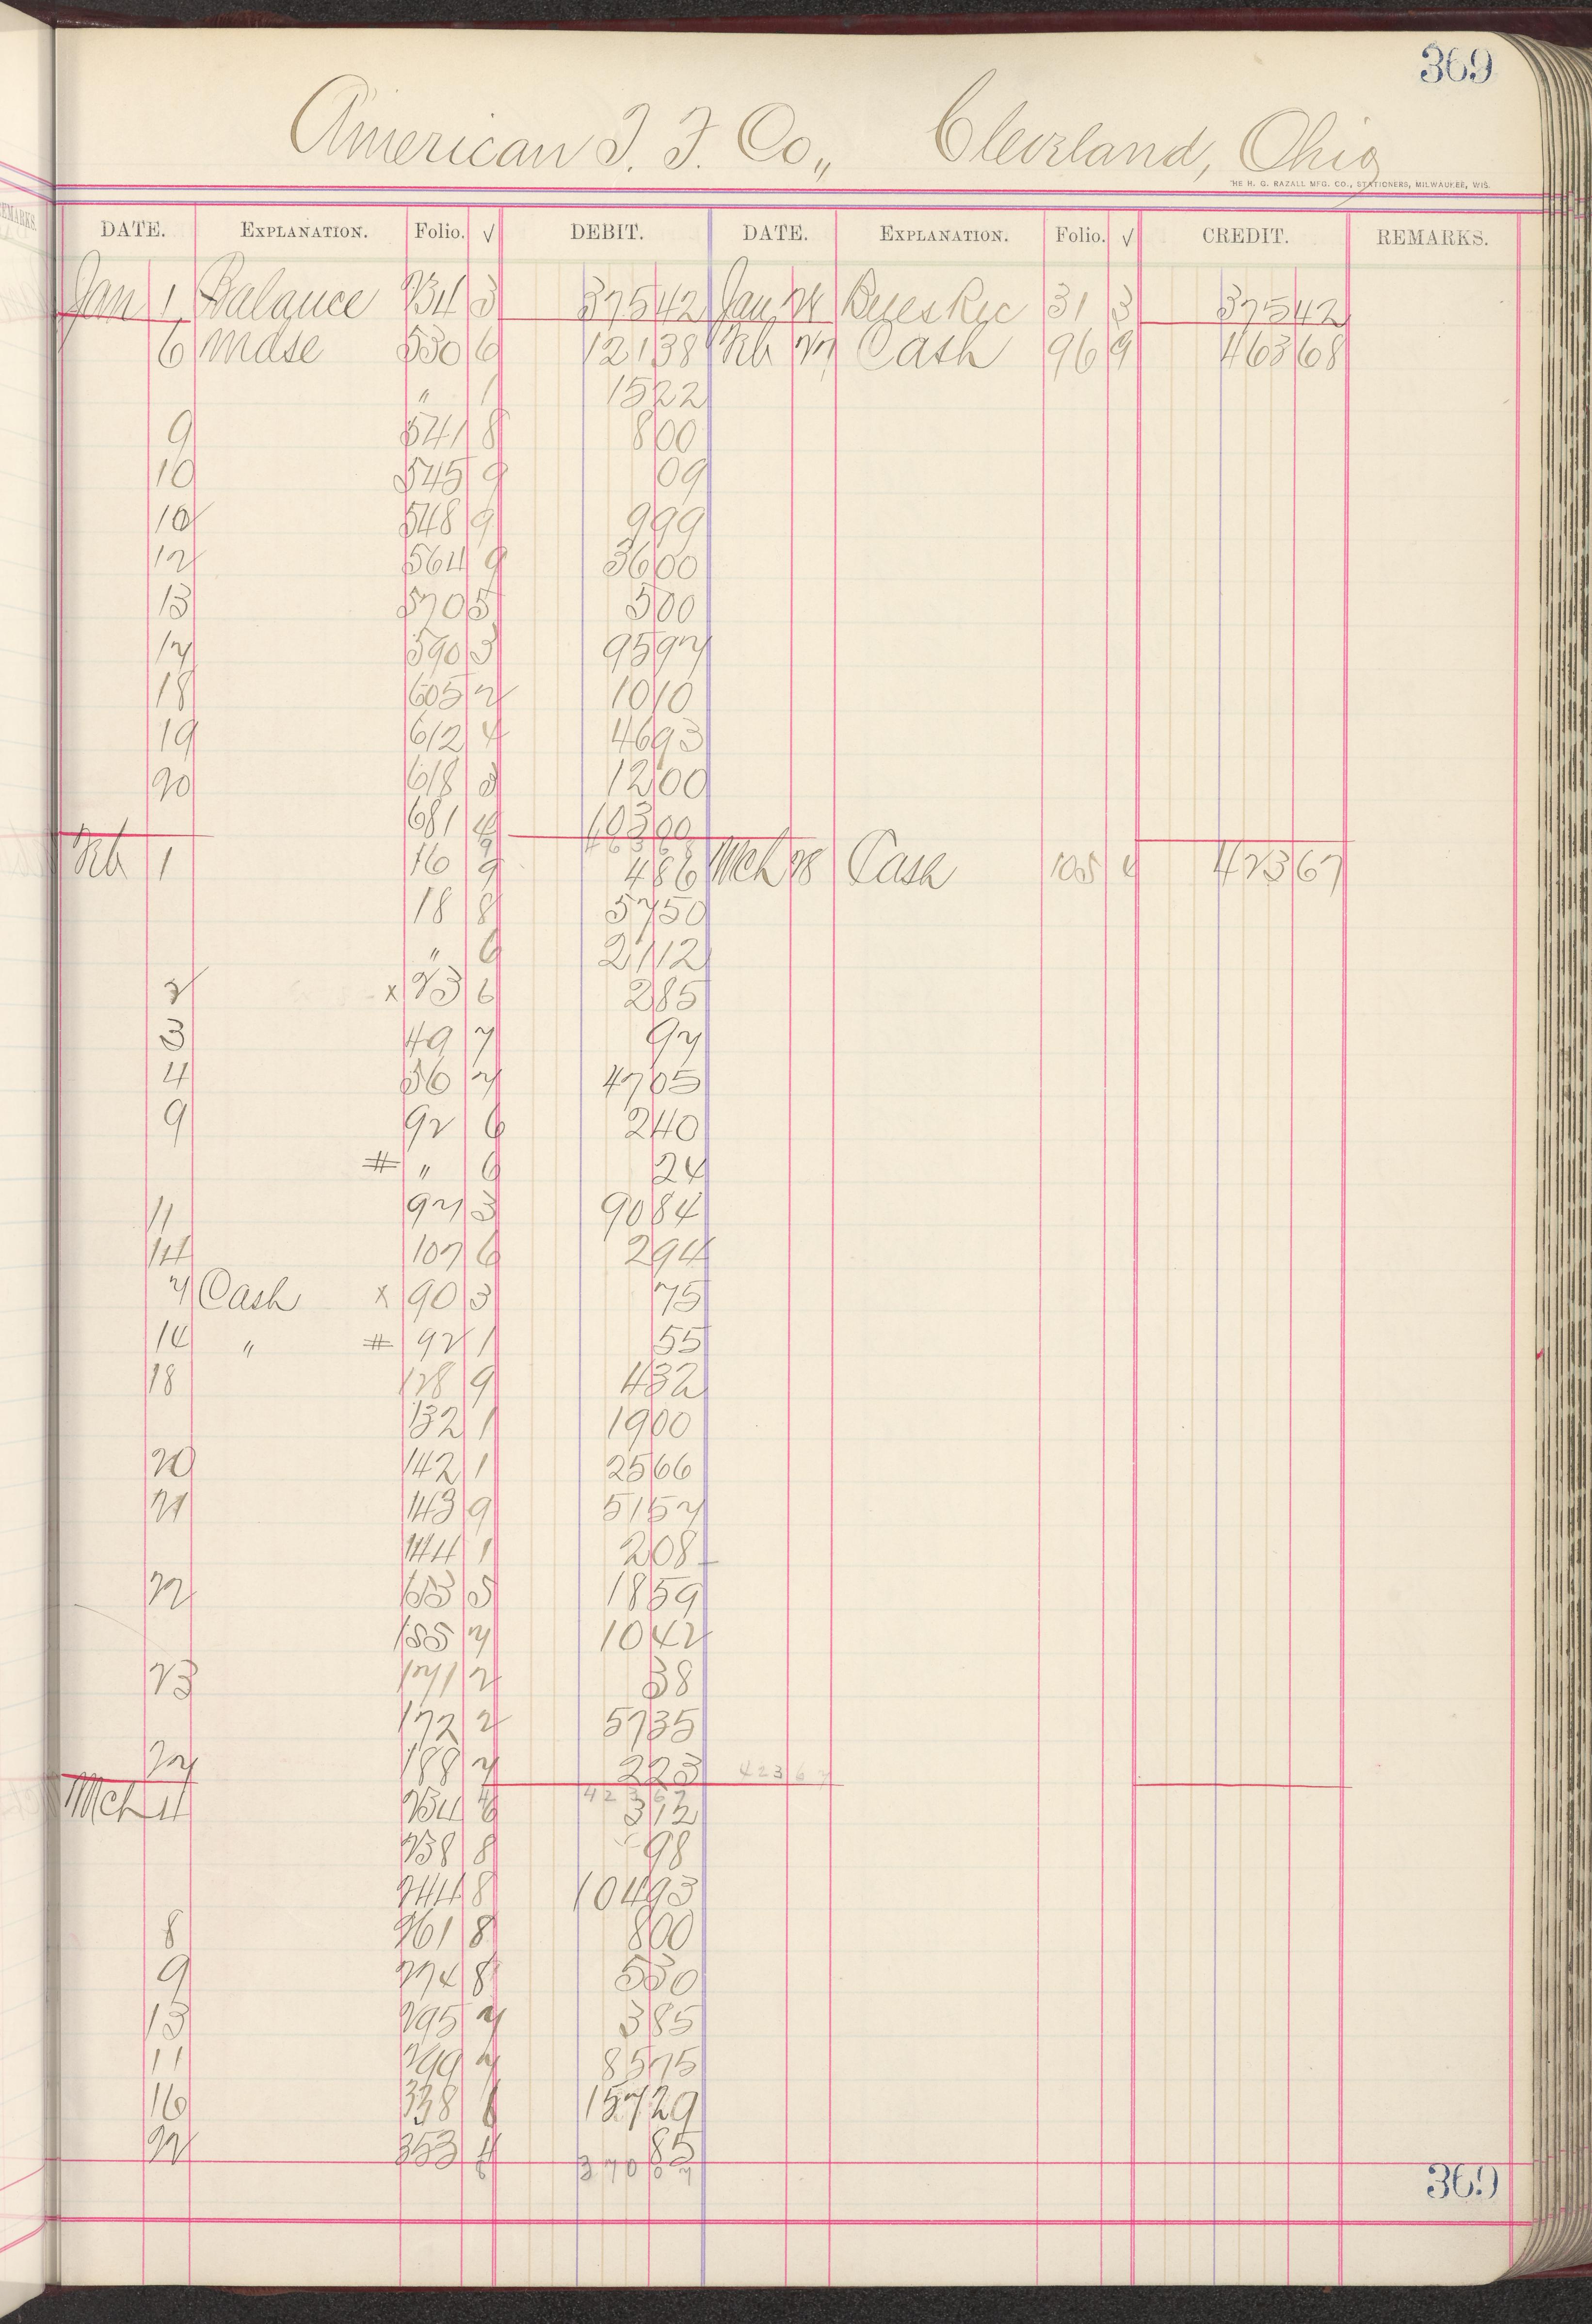 369
American T. T. Co,, Cleveland, Ohio
THE H. G. RAZALL MFG. CO., STATIONERS, MILWAUKEE, WIS.
DATE. EXPLANATION. Folio. √ DEBIT. DATE. EXPLANATION. Folio. √ CREDIT. REMARKS.
Jan 1 Balance 234 3 375 42 Jan 24 Rec 31 3 375 42
6 Mdse 530 6 121 38 Feb 27 Cash 96 9 463 68
" 1 15 22
9 541 8 8 00
10 545 9 09
10 548 9 9 99
12 564 9 36 00
13 570 5 5 00
17 590 3 95 97
18 605 2 10 10
19 612 4 46 93
20 618 3 12 00
681 103 00
Feb 1 16 9 4 86 Mch 28 Cash 105 4 423 67
18 8 57 50
" 6 21 12
2 x 23 6 2 85
3 49 7 97
4 56 7 47 05
9 92 6 2 40
# " 6 24
11 97 3 90 84
14 107 6 2 94
7 Cash x 90 3 75
14 " # 92 1 55
18 128 9 4 32
132 1 19 00
20 142 1 25 66
21 143 9 51 57
144 1 2 08
22 153 5 18 59
155 7 10 42
23 171 2 38
172 2 57 35
24 188 7 2 23 423 67
423 67
Mch 4 234 6 3 12
238 8 98
244 8 104 93
8 261 8 8 00
9 274 8 5 50
13 295 7 3 85
11 299 7 85 75
16 338 6 157 29
22 353 4 85
370 67
369